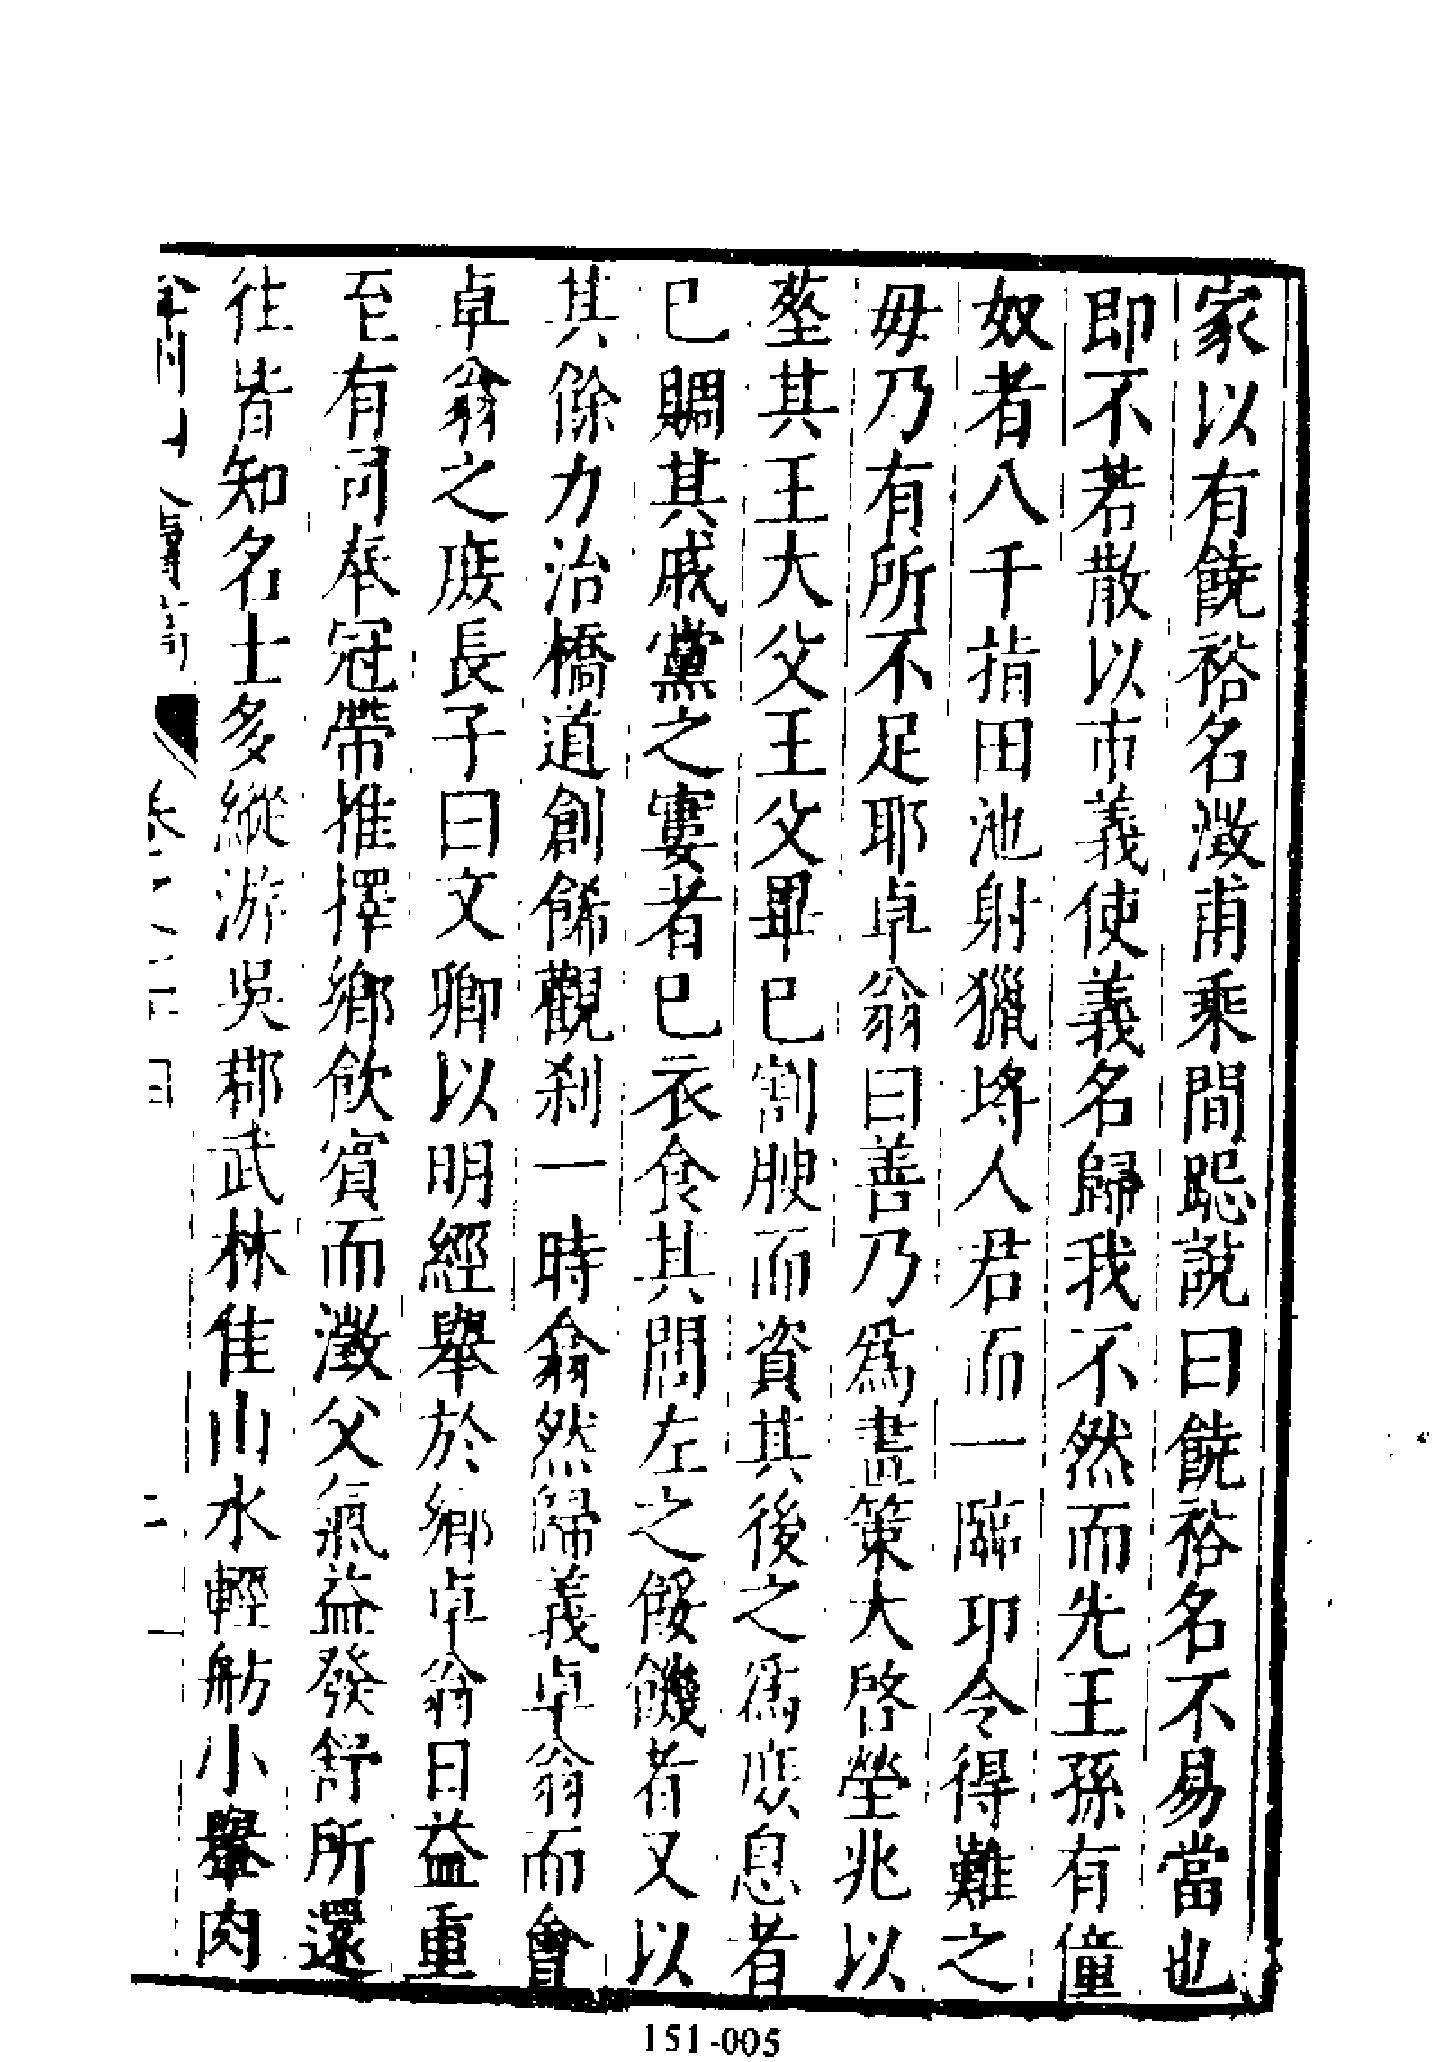 家以有饒裕名澂甫乘間跽說曰饒裕名不易當也
即不若散以市義使義名歸我不然而先王孫有僮
奴者八千指田池射獵埓人君而一臨邛令得難之
毋乃有所不足耶卓翁曰善乃爲畫策大啓塋兆以
塟其王大父王父畢已割腴而資其後之爲應息者
已賙其戚黨之寠者已衣食其閭左之餒饑者又以
其餘力治橋道創餙觀刹一時翕然歸義卓翁而會
卓翁之庶長子曰文卿以明經舉於鄉卓翁日益重
至有司奉冠帶推擇鄉飲賓而澂父氣益發舒所還
往皆知名士多縱游吳郡武林佳山水輕舫小轝肉
弇州山人續稿
卷之
151-005